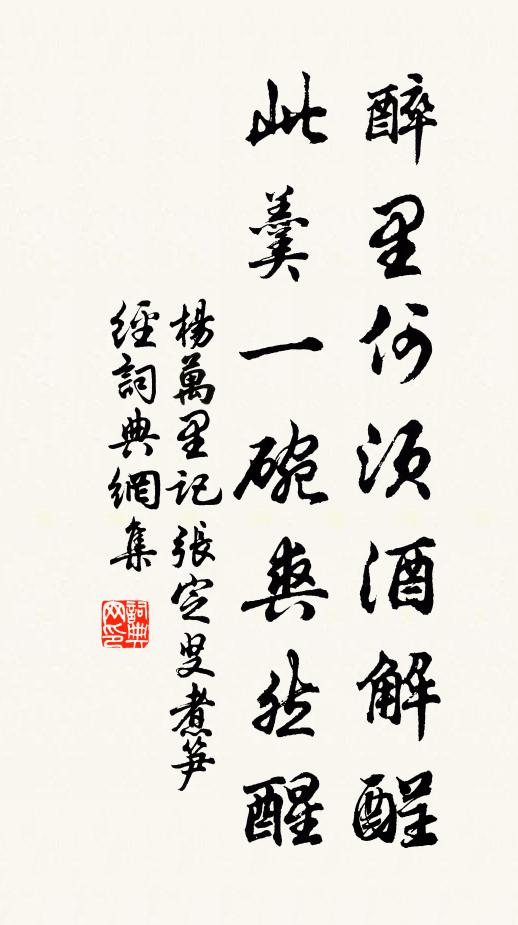 醉里何須酒解酲
此羹一碗爽然醒
楊萬里記張定叟煮笋
經詞典網集
詞典
网印